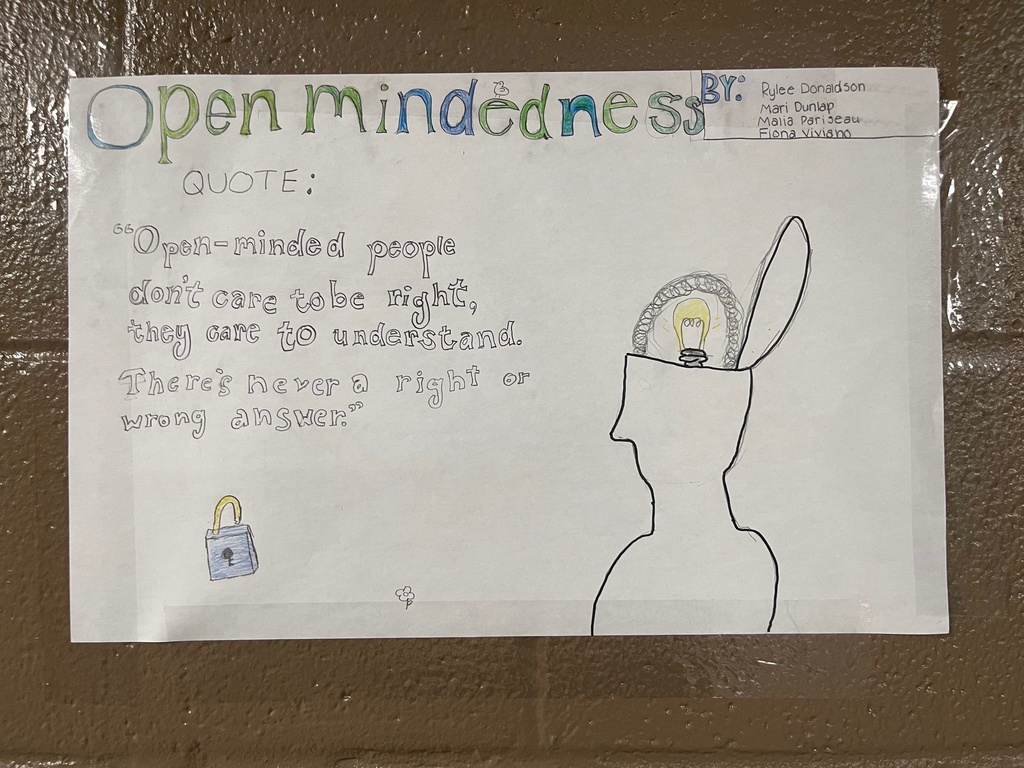 Open mindedness
BY:
Rylee Donaldson
Mari Dunlap
Malia Pariseau
Fiona Viviano
QUOTE:
“Open-minded people
don't care to be right,
they care to understand.
There's never a right or
wrong answer.”